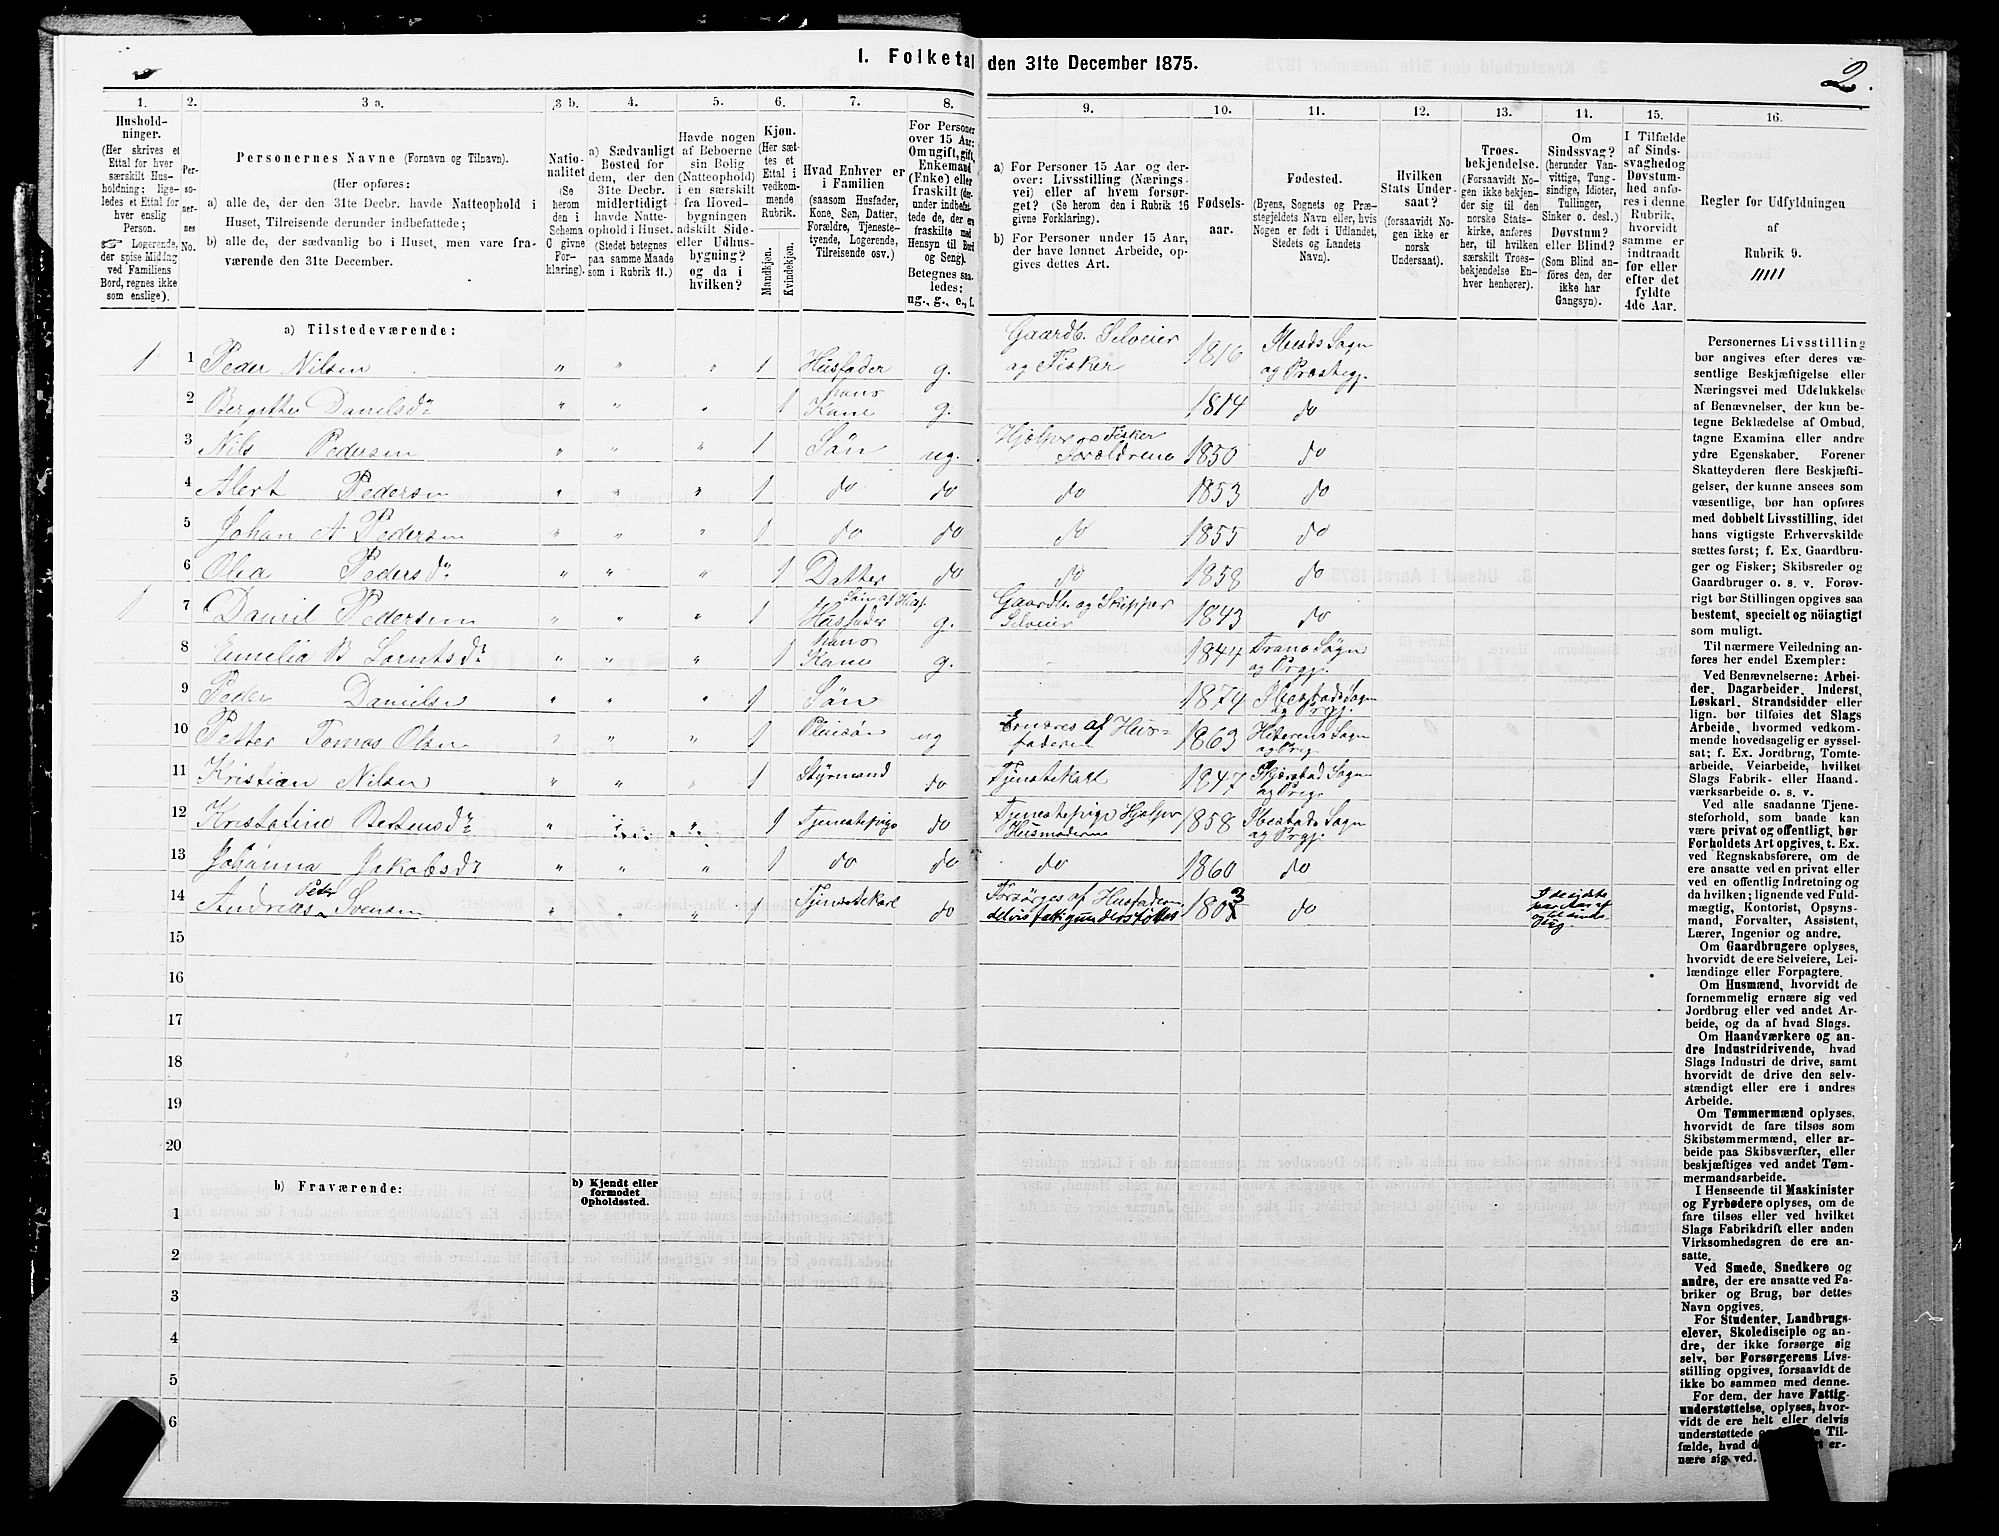 I. Folketal den 31te December 1875.
2.
1.
Hushold-
ninger.
(Her skrives et
Ettal for hver
særskilt Hus-
holdning; lige-
ledes et Ettal for
hver enslig
Person.
☞ Logerende,
der spise Middag
ved Familiens
Bord, regnes ikke
som enslige).
2.
Per-
so-
ner-
nes
No.
3 a.
Personernes Navne (Fornavn og Tilnavn).
(Her opføres:
a) alle de, der den 31te Decbr. havde Natteophold i
Huset, Tilreisende derunder indbefattede;
b) alle de, der sædvanlig bo i Huset, men vare fra-
værende den 31te December.
3 b.
Natio-
nalitet
(Se
herom
den i
Schema
C givne
For-
klaring).
4.
a) Sædvanligt
Bosted for
dem, der den
31te Decbr.
midlertidigt
havde Natte-
ophold i Huset.
(Stedet betegnes
paa samme Maade
som i Rubrik 11.)
5.
Havde nogen
af Beboerne
sin Bolig
(Natteophold)
i en særskilt
fra Hoved-
bygningen
adskilt Side-
eller Udhus-
bygning?
og da i
hvilken?
6.
Kjøn.
(Her sæt-
tes et
Ettal i
vedkom-
mende
Rubrik.
Mandkjøn.
Kvindekjøn.
7.
Hvad Enhver er
i Familien
(saasom Husfader,
Kone, Søn, Datter,
Forældre, Tjeneste-
tyende, Logerende,
Tilreisende osv.)
8.
For Personer
over 15 Aar:
Om ugift, gift,
Enkemand
(Enke) eller
fraskilt (der-
under indbefat-
tede de, der ere
fraskilte med
Hensyn til Bord
og Seng).
Betegnes saa-
ledes:
ug., g., e., f.
9.
a) For Personer 15 Aar og der-
over: Livsstilling (Nærings-
vei) eller af hvem forsør-
get? (Se herom de i Rubrik 16
givne Forklaring).
b) For Personer under 15 Aar,
der have lønnet Arbeide, op-
gives dettes Art.
10.
Fødsels-
aar.
11.
Fødested.
(Byens, Sognets og Præ-
stegjeldets Navn eller, hvis
Nogen er født i Udlandet,
Stedets og Landets
Navn).
12.
Hvilken
Stats Under-
saat?
(forsaavidt No-
gen ikke er
norsk
Undersaat).
13.
Troes-
bekjendelse.
(Forsaavidt No-
gen ikke bekjen-
der sig til den
norske Stats-
kirke, anføres
her, til hvilken
særskilt Troes-
bekjendelse En-
hver henhører).
14.
Om
Sindssvag?
(herunder Van-
vittige, Tung-
sindige, Idioter,
Tullinger,
Sinker o. desl.)
Døvstum?
eller Blind?
(Som Blind an-
føres den, der
ikke har
Gangsyn).
15.
I Tilfælde
af Sinds-
svaghed og
Døvstum-
hed anfø-
res i denne
Rubrik,
hvorvidt
samme er
indtraadt
før eller
efter det
fyldte
4de Aar.
16.
Regler for Udfyldningen
af
Rubrik 9.
a) Tilstedeværende:
1 1 Peder Nilsen " " " 1 Husfader g. Gaardb. Selveier og Fisker 1816 Ibestads Sogn og Præstegj.
2 Bergitte Danielsdr " " " 1 hans Kone g. 1814 do
3 Nils Pedersen " " " 1 Søn ug. Hjælper og Fisker Foræ­ldrene 1850 do
4 Alert Pedersen " " " 1 do do do 1853 do
5 Johan A Pedersen " " " 1 do do do 1855 do
6 Olea Pedersdr " " " 1 Datter do do 1858 do
1 7 Daniel Pedersen " " " 1 Søn af Husf. Husfader g. Gaardb. og Skipper Selveier 1843 do
8 Emelia B Lorntsdr " " " 1 hans Kone g. 1844 Tranø Sogn og Prgj.
9 Peder Danielsen " " " 1 Søn 1874 Ibestads Sogn og Prgj.
10 Petter Tomas Olsen " " " 1 Pleiesøn ug Ernæres af Hus-faderen 1863 Hiterens Sogn og Prg.
11 Kristian Nilsen " " " 1 Styrmand do Tjenestekarl 1847 Skjerstad Sogn og Prg.
12 Kristatine Bertensdr " " " 1 Tjenestepige do Tjenestepige Hjælper Husmoderen 1858 Ibestads Sogn og Prgj.
13 Johanna Jakobsdr " " " 1 do do do 1860 do
14 Andreas Peder Svensen " " " 1 Tjenestekarl do Forsørges af Husfaderen delvis fattigunderstøttet 1803 do
15
16
17
18
19
20
b) Fraværende:
b) Kjendt eller
formodet
Opholdssted.
1
2
3
4
5
6
Personernes Livsstilling
bør angives efter deres væ-
sentlige Beskjæftigelse eller
Næringsvei med Udelukkelse
af Benævnelser, der kun be-
tegne Beklædelse af Ombud,
tagne Examina eller andre
ydre Egenskaber. Forener
Skatteyderen flere Beskjæfti-
gelser, der kunne ansees som
væsentlige, bør han opføres
med dobbelt Livsstilling, idet
hans vigtigste Erhvervskilde
sættes først; f. Ex. Gaardbru-
ger og Fisker; Skibsreder og
Gaardbruger o. s. v. Forøv-
rigt bør Stillingen opgives saa
bestemt, specielt og nöiagtigt
som muligt.
Til nærmere Veiledning an-
føres her endel Exempler:
Ved Benævnelserne: Arbei-
der, Dagarbeider, Inderst,
Løskarl, Strandsidder eller
lign. bør tilføies det Slags
Arbeide, hvormed vedkom-
mende hovedsagelig er syssel-
sat; f. Ex. Jordbrug, Tomte-
arbeide, Veiarbeide, hvilket
Slags Fabrik- eller Haand-
værksarbeide o. s. v.
Ved alle saadanne Tjene-
steforhold, som baade kan
være privat og offentligt, bør
Forholdets Art opgives, t. Ex.
ved Regnskabsførere, om de
ere ansatte ved en privat eller
ved en offentlig Indretning og
da hvilken; lignende ved Fuld-
mægtig, Kontorist, Opsyns-
mand, Forvalter, Assistent,
Lærer, Ingeniør og andre.
Om Gaardbrugere oplyses,
hvorvidt de ere Selveiere, Lei-
lændinge eller Forpagtere.
Om Husmænd, hvorvidt de
fornemmelig ernære sig ved
Jordbrug eller ved andet Ar-
beide, og da af hvad Slags.
Om Haandværkere og an-
dre Industridrivende, hvad
Slags Industri de drive, samt
hvorvidt de drive den selv-
stændigt eller ere i andres
Arbeide.
Om Tømmermænd oplyses,
hvorvidt de fare tilsøs som
Skibstømmermænd, eller ar-
beide paa Skibsværfter, eller
beskjæftiges ved andet Tøm-
mermandsarbeide.
I Henseende til Maskinister
og Fyrbødere oplyses, om de
fare tilsøs eller ved hvilket
Slags Fabrikdrift eller anden
Virksomhedsgren de ere an-
satte.
Ved Smede, Snedkere og
andre, der ere ansatte ved Fa-
briker og Brug, bør dettes
Navn opgives.
For Studenter, Landbrugs-
elever, Skoledisciple og an-
dre, der ikke forsørge sig
selv, bør Forsørgerens Livs-
stilling opgives, forsaavidt de
ikke bo sammen med denne.
For dem, der have Fattig-
understøttelse, oplyses, hvor-
vidt de ere helt eller delvis
understøttede Til-
fælde, hvad er-
nære sig ved.